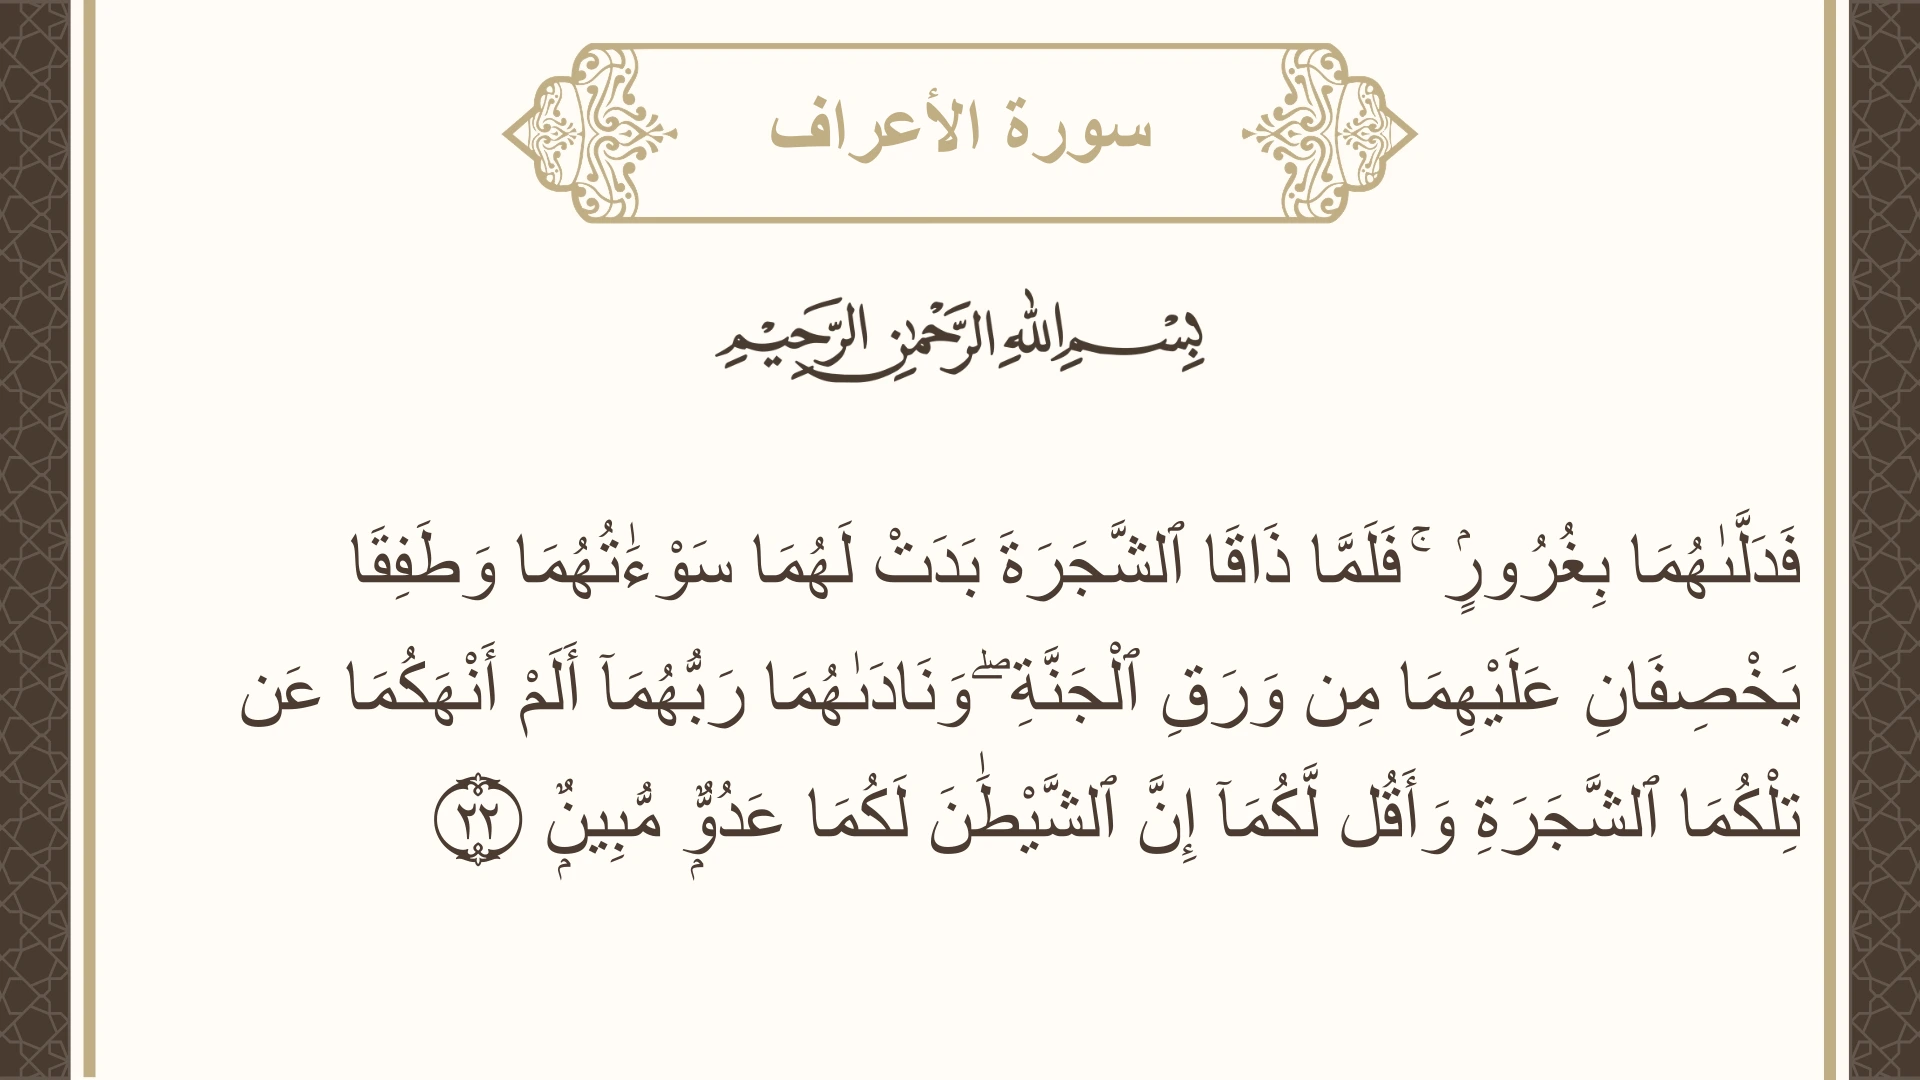 سورة الأعراف
بِسْمِ اللهِ الرَّحْمٰنِ الرَّحِيْمِ
فَدَلَّىٰهُمَا بِغُرُورٍۢ ۚ فَلَمَّا ذَاقَا ٱلشَّجَرَةَ بَدَتْ لَهُمَا سَوْءَٰتُهُمَا وَطَفِقَا
يَخْصِفَانِ عَلَيْهِمَا مِن وَرَقِ ٱلْجَنَّةِ ۖ وَنَادَىٰهُمَا رَبُّهُمَآ أَلَمْ أَنْهَكُمَا عَن
تِلْكُمَا ٱلشَّجَرَةِ وَأَقُل لَّكُمَآ إِنَّ ٱلشَّيْطَٰنَ لَكُمَا عَدُوٌّۭ مُّبِينٌۭ ۝٢٢